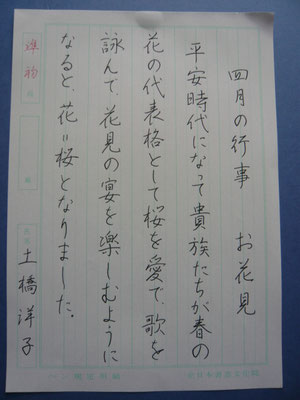 四月の行事　お花見
平安時代になって貴族たちが春の
花の代表格として桜を愛で、歌を
詠んで、花見の宴を楽しむように
なると、花＝桜となりました。
土橋洋子